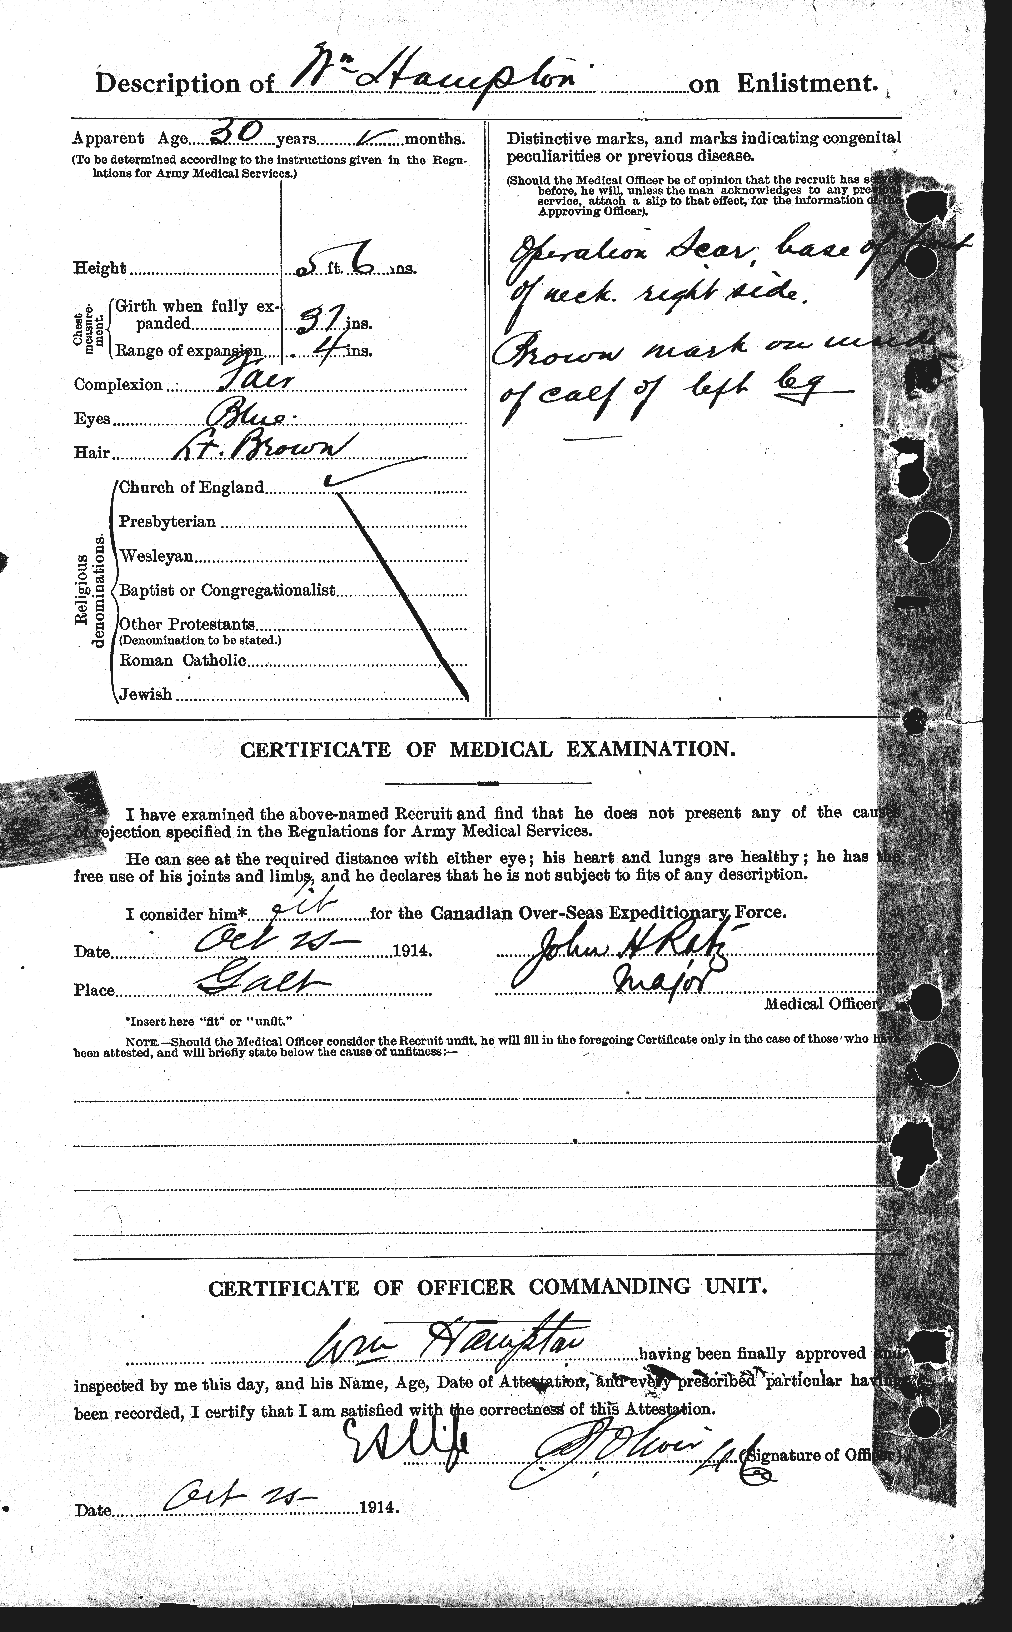 Description of Wm Hampton on Enlistment.
Apparent Age 30 years months.
(To be determined according to the instructions given in the Regu-
lations for Army Medical Services.)
Height 5 ft. 6 ins.
Chest measure-ment.
Girth when fully ex-
panded 37 ins.
Range of expansion 4 ins.
Complexion Fair
Eyes Blue.
Hair Lt. Brown
Religious denominations.
Church of England ✓
Presbyterian
Wesleyan
Baptist or Congregationalist
Other Protestants
(Denomination to be stated.)
Roman Catholic
Jewish
Distinctive marks, and marks indicating congenital
peculiarities or previous disease.
(Should the Medical Officer be of opinion that the recruit has
before, he will, unless the man acknowledges to any
service, attach a slip to that effect, for the information
Approving Officer).
Operation Scar, base of front
of neck. right side.
Brown mark on inside
of calf of left leg
CERTIFICATE OF MEDICAL EXAMINATION.
I have examined the above-named Recruit and find that he does not present any of the causes
of rejection specified in the Regulations for Army Medical Services.
He can see at the required distance with either eye; his heart and lungs are healthy; he has the
free use of his joints and limbs, and he declares that he is not subject to fits of any description.
I consider him* fit for the Canadian Over-Seas Expeditionary Force.
Date Oct 25 1914. John H Ratz
Place Galt Major
Medical Officer.
*Insert here "fit" or "unfit."
NOTE.—Should the Medical Officer consider the Recruit unfit, he will fill in the foregoing Certificate only in the case of those who have
been attested, and will briefly state below the cause of unfitness:—
CERTIFICATE OF OFFICER COMMANDING UNIT.
Wm Hampton having been finally approved and
inspected by me this day, and his Name, Age, Date of Attestation, and every prescribed particular having
been recorded, I certify that I am satisfied with the correctness of this Attestation.
(Signature of Officer)
Date Oct 25 1914.